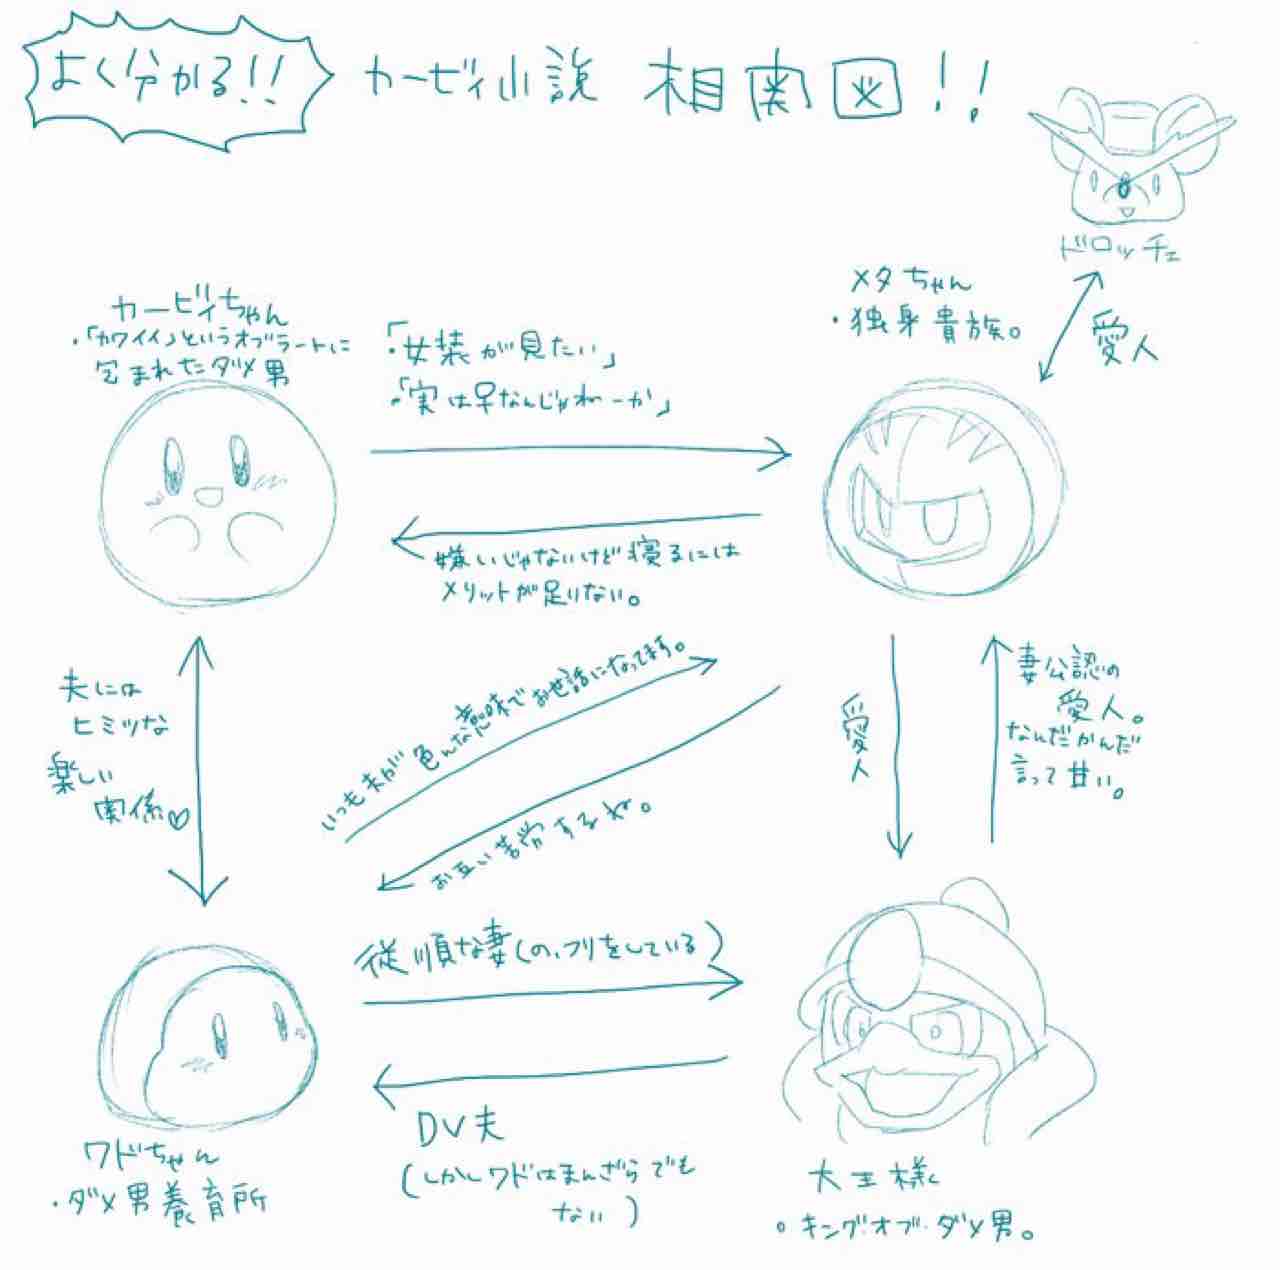 よく分かる!! カービィ小説 相関図!!
ドロッチェ
カービィちゃん
・「カワイイ」というオブラートに
包まれたダメ男
「女装が見たい」
「実は早なんじゃねーか」
メタちゃん
・独身貴族。
愛人
嫌いじゃないけど寝るには
メリットが足りない。
夫には
ヒミツな
楽しい
関係♡
いつも夫が色んな意味でお世話になってます。
お互い苦労するね。
愛人
妻公認の
愛人。
なんだかんだ
言って甘い。
従順な妻(の、フリをしている)
DV夫
(しかしワドはまんざらでも
ない)
ワドちゃん
・ダメ男養育所
大王様
・キング・オブ・ダメ男。